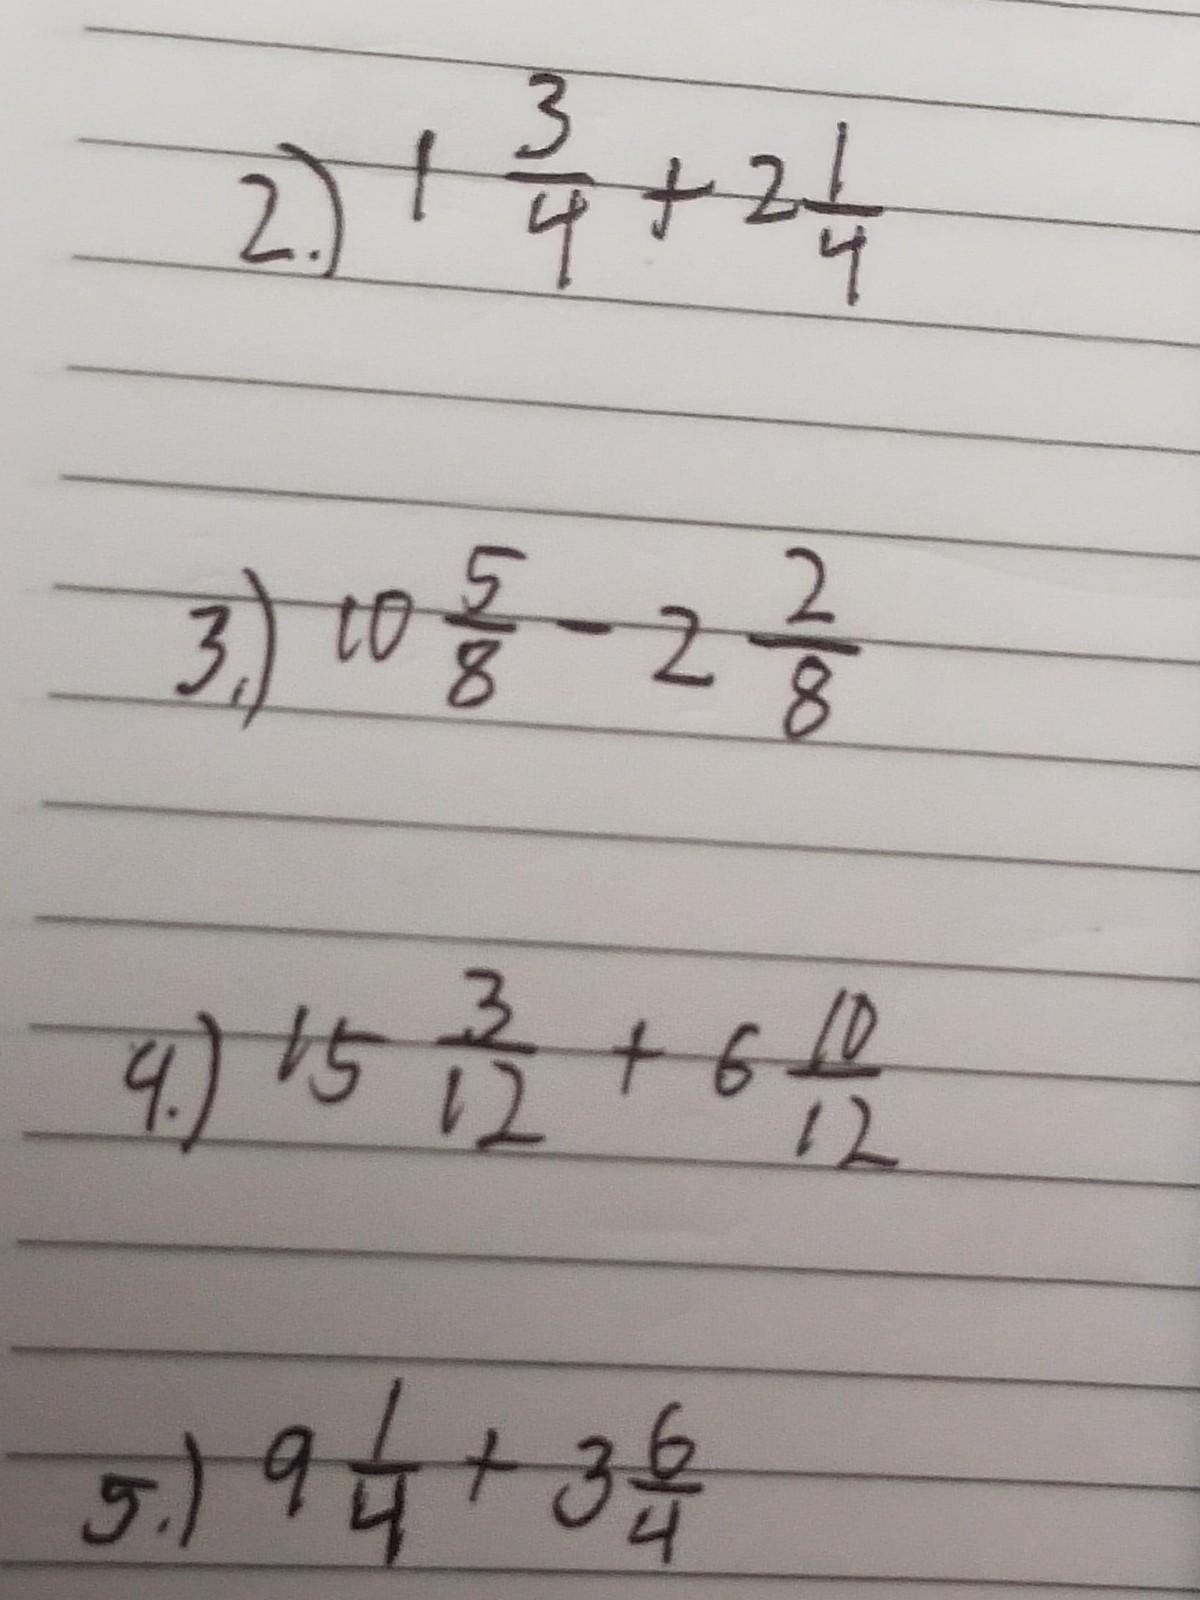 2.) 1 3/4 + 2 1/4
3.) 10 5/8 - 2 2/8
4.) 15 3/12 + 6 10/12
5.) 9 1/4 + 3 6/4